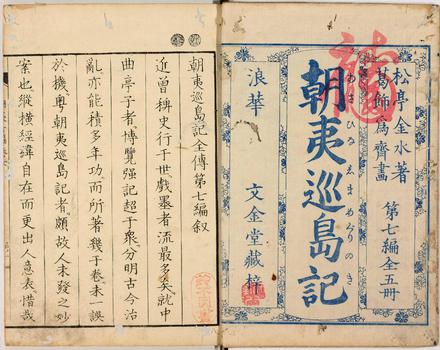 松亭金水著
葛飾爲齊畫
第七編全五冊
朝夷巡島記
あさひなしまめぐりのき
浪華 文金堂藏梓
朝夷巡島記全傳第七編叙
近曾稗史行于世戲墨者流最多矣就中
曲亭子者博覽强記超于衆分明古今治
亂亦能積多年功而所著幾于卷未一誤
於機粤朝夷巡島記者頗故人未發之妙
案也縱橫經緯自在而更出人意表惜哉